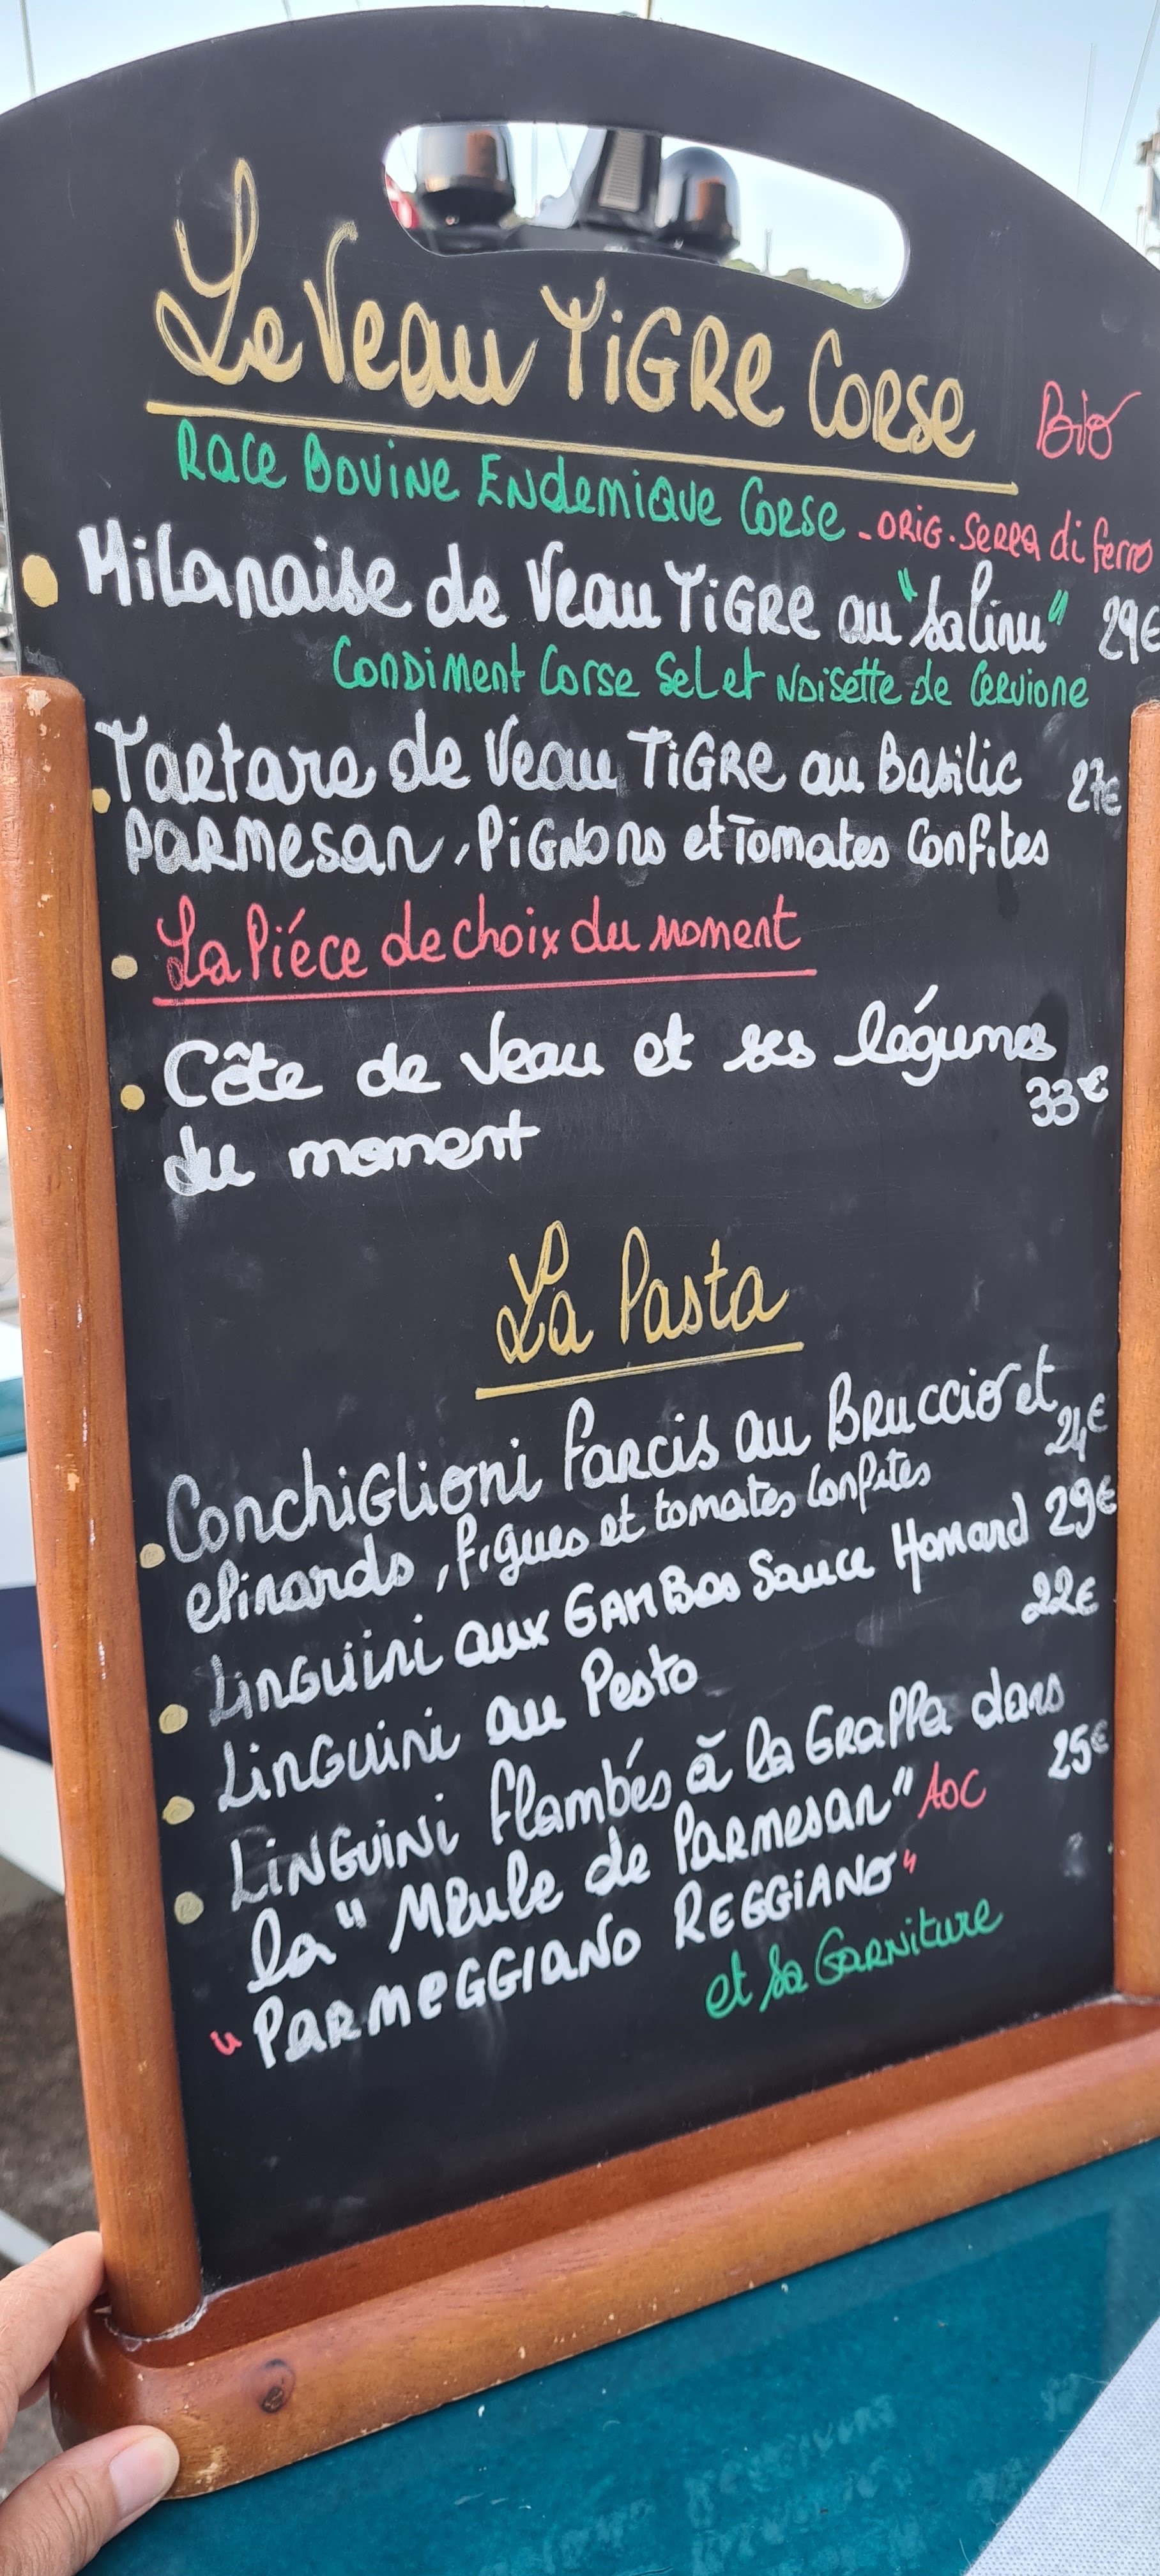 Le Veau TiGRe Corse
Bio
Race Bovine Endemique Corse - ORiG. Serra di ferro
Milanaise de Veau TiGRe au "Salinu" 29€
Condiment Corse Sel et Noisette de Cervione
Tartare de Veau TiGRe au Basilic 27€
Parmesan, Pignons et Tomates Confites
La Piéce de choix du moment
Côte de Veau et ses légumes
33€
du moment
La Pasta
Conchiglioni Farcis au Bruccio et
24€
epinards, figues et tomates confites
Linguini aux Gambas Sauce Homard 29€
Linguini au Pesto 22€
Linguini flambés à la Grappa dans
la "Meule de Parmesan" AOC 25€
"Parmeggiano Reggiano"
et sa Garniture